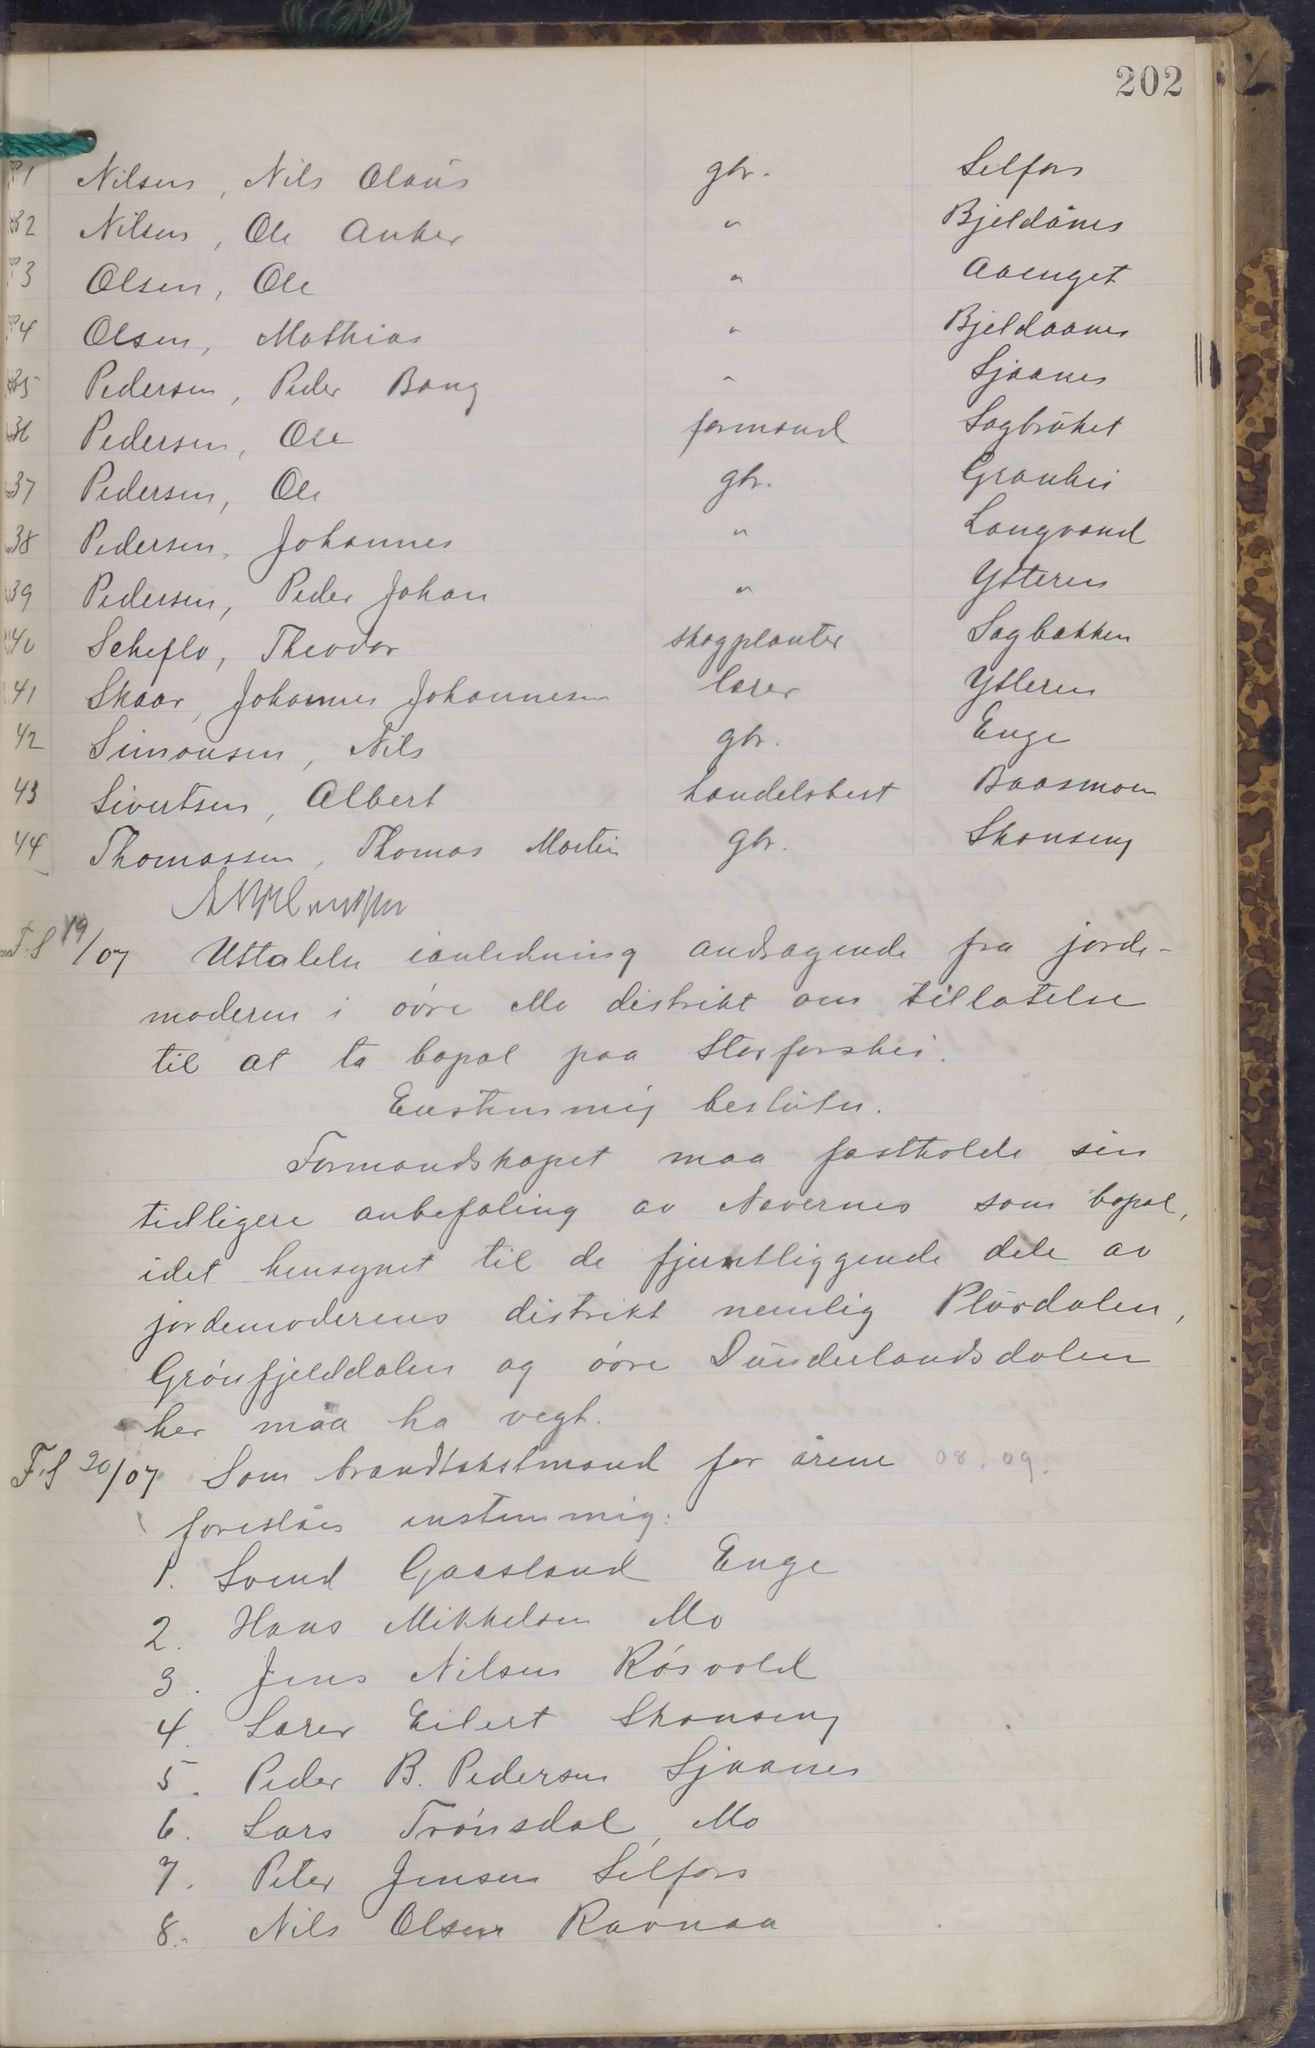 202
31 Nilsen, Nils Olaus gbr. Selfors
32 Nilsen, Ole Anker " Bjeldånes
33 Olsen, Ole " Aaenget
34 Olsen, Mathias " Bjeldaanes
35 Pedersen, Peder Bang " Sjaanes
36 Pedersen, Ole formand Sagbruket
37 Pedersen, Ole gbr. Granhei
38 Pedersen, Johannes " Langvand
39 Pedersen, Peder Johan " Ytteren
40 Scheflo, Theodor skogplanter Sagbakken
41 Skaar, Johannes Johannesen lærer Ytteren
42 Simonsen, Nils gbr. Enge
43 Sivertsen, Albert handelsbest Baasmoen
44 Thomassen, Thomas Martin gbr. Skonseng
F.S 19/07 Uttalelse ianledning andragende fra jorde-
moderen i øvre Mo distrikt om tillatelse
til at ta bopæl paa Storforshei.
Enstemmig beslutn.
Formandskapet maa fastholde sin
tidligere anbefaling av Nævernes som bopæl,
idet hensynet til de fjerntliggende dele av
jordemoderens distrikt nemlig Pluradalen,
Grønfjelddalen og øvre Dunderlandsdalen
her maa ha vegt.
F.S 20/07 Som brandtakstmænd for årene 08, 09.
foreslåes enstemmig:
1. Svend Gaasland Enge
2. Hans Mikkelsen Mo
3. Jens Nilsen Røsvold
4. Lærer Eilert Skonseng
5. Peder B. Pedersen Sjaanes
6. Lars Trønsdal, Mo
7. Peter Jensen Selfors
8. Nils Olsen Ravnaa